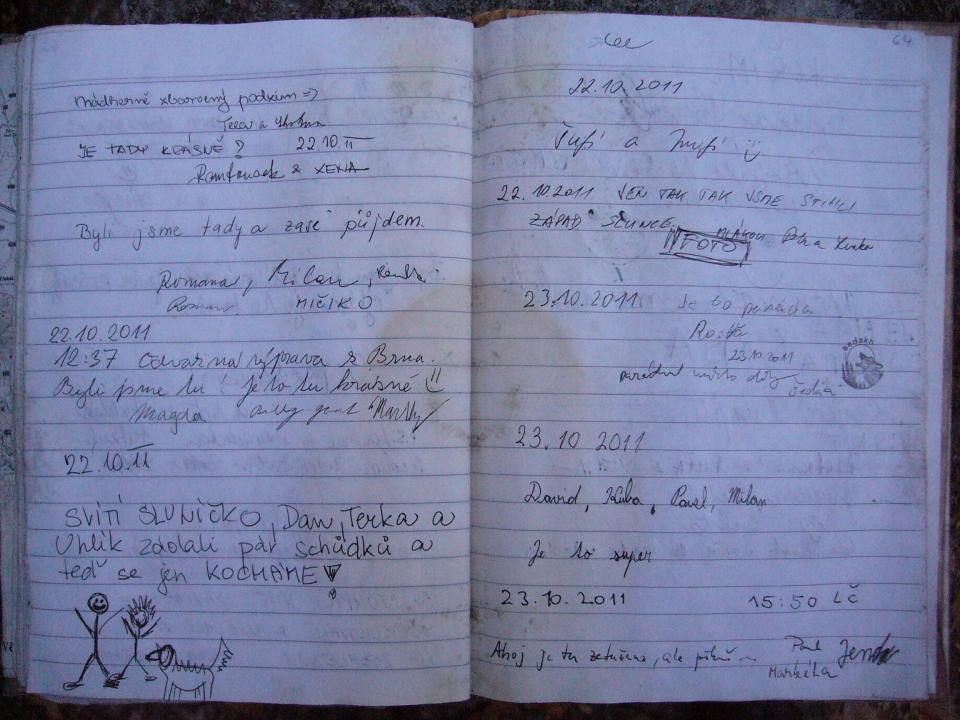 Nádherně zbarvený podzim =>
Terka a
JE TADY KRÁSNĚ ? 22.10.11
Rumfousek & XENA
Byli jsme tady a zase půjdem.
Romana, Milan,
Roman MIČIKO
22.10.2011
12:37 výprava z Brna.
Byli jsme tu! je to tu krásné
Magda
22.10.11
SVÍTÍ SLUNÍČKO, Dan, Terka a
Uhlík zdolali pár schůdků a
teď se jen KOCHÁME!
64
22.10.2011
Ťufi a Žufi
22.10.2011 JEN TAK TAK JSME STIHLI
ZÁPAD SLUNCE
FOTO
23.10.2011 Je to paráda
Rosťa
23.10.2011
parádní místo díky
23.10 2011
David, Kuba, Pavel, Milan
Je to super
23.10.2011 15:50 LČ
Ahoj je tu zataženo, ale pěkně
Jenda
Markéta